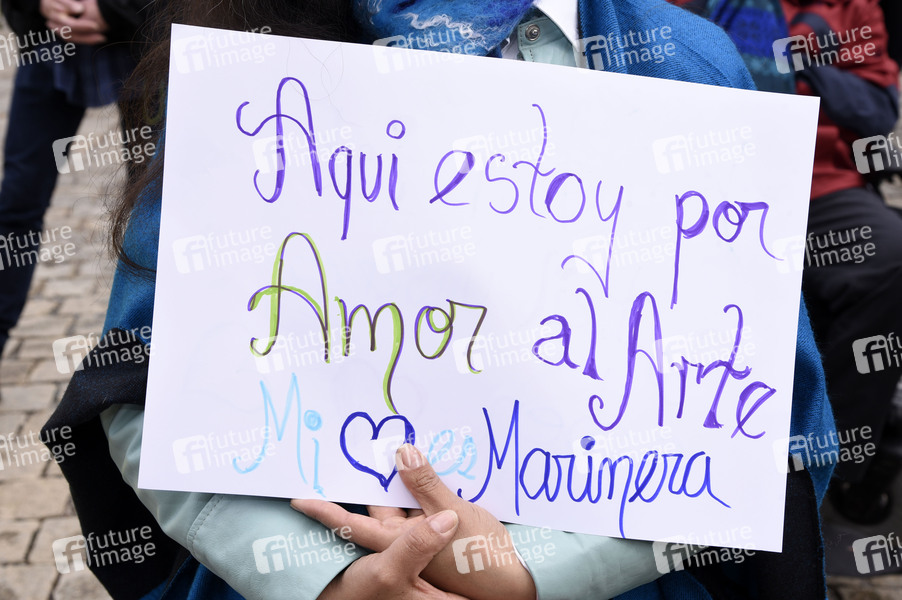 Aqui estoy por
Amor al Arte
Mi es Marinera
future image